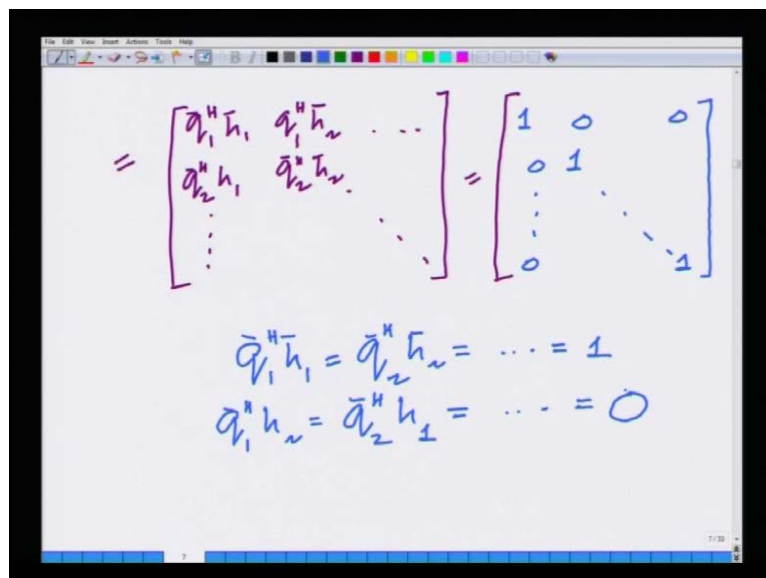 File Edit View Insert Actions Tools Help
= [ q̄₁ᴴ h̄₁ q̄₁ᴴ h̄₂ ... ] = [ 1 0 0 ]
q̄₂ᴴ h₁ q̄₂ᴴ h̄₂ 0 1
⋮ ⋱ ⋮ ⋱
0 1
q̄₁ᴴ h̄₁ = q̄₂ᴴ h̄₂ = ... = 1
q̄₁ᴴ h₂ = q̄₂ᴴ h₁ = ... = 0
7